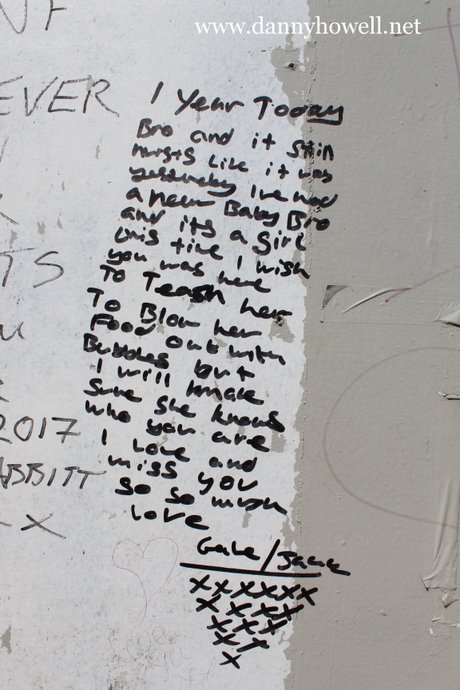 www.dannyhowell.net
EVER
1 Year Today
Bro and it still
hurts Like it was
yesterday I've had
a new Baby Bro
and its a girl
this time I wish
you was here
To Teash her
To Blow her
Food out with
Bubbles but
I will make
Sure she knows
who you are
I Love and
miss you
so so mush
Love
TS
2017
ABBITT
x x
xxxxxx
xxxx
xxx
xx
x